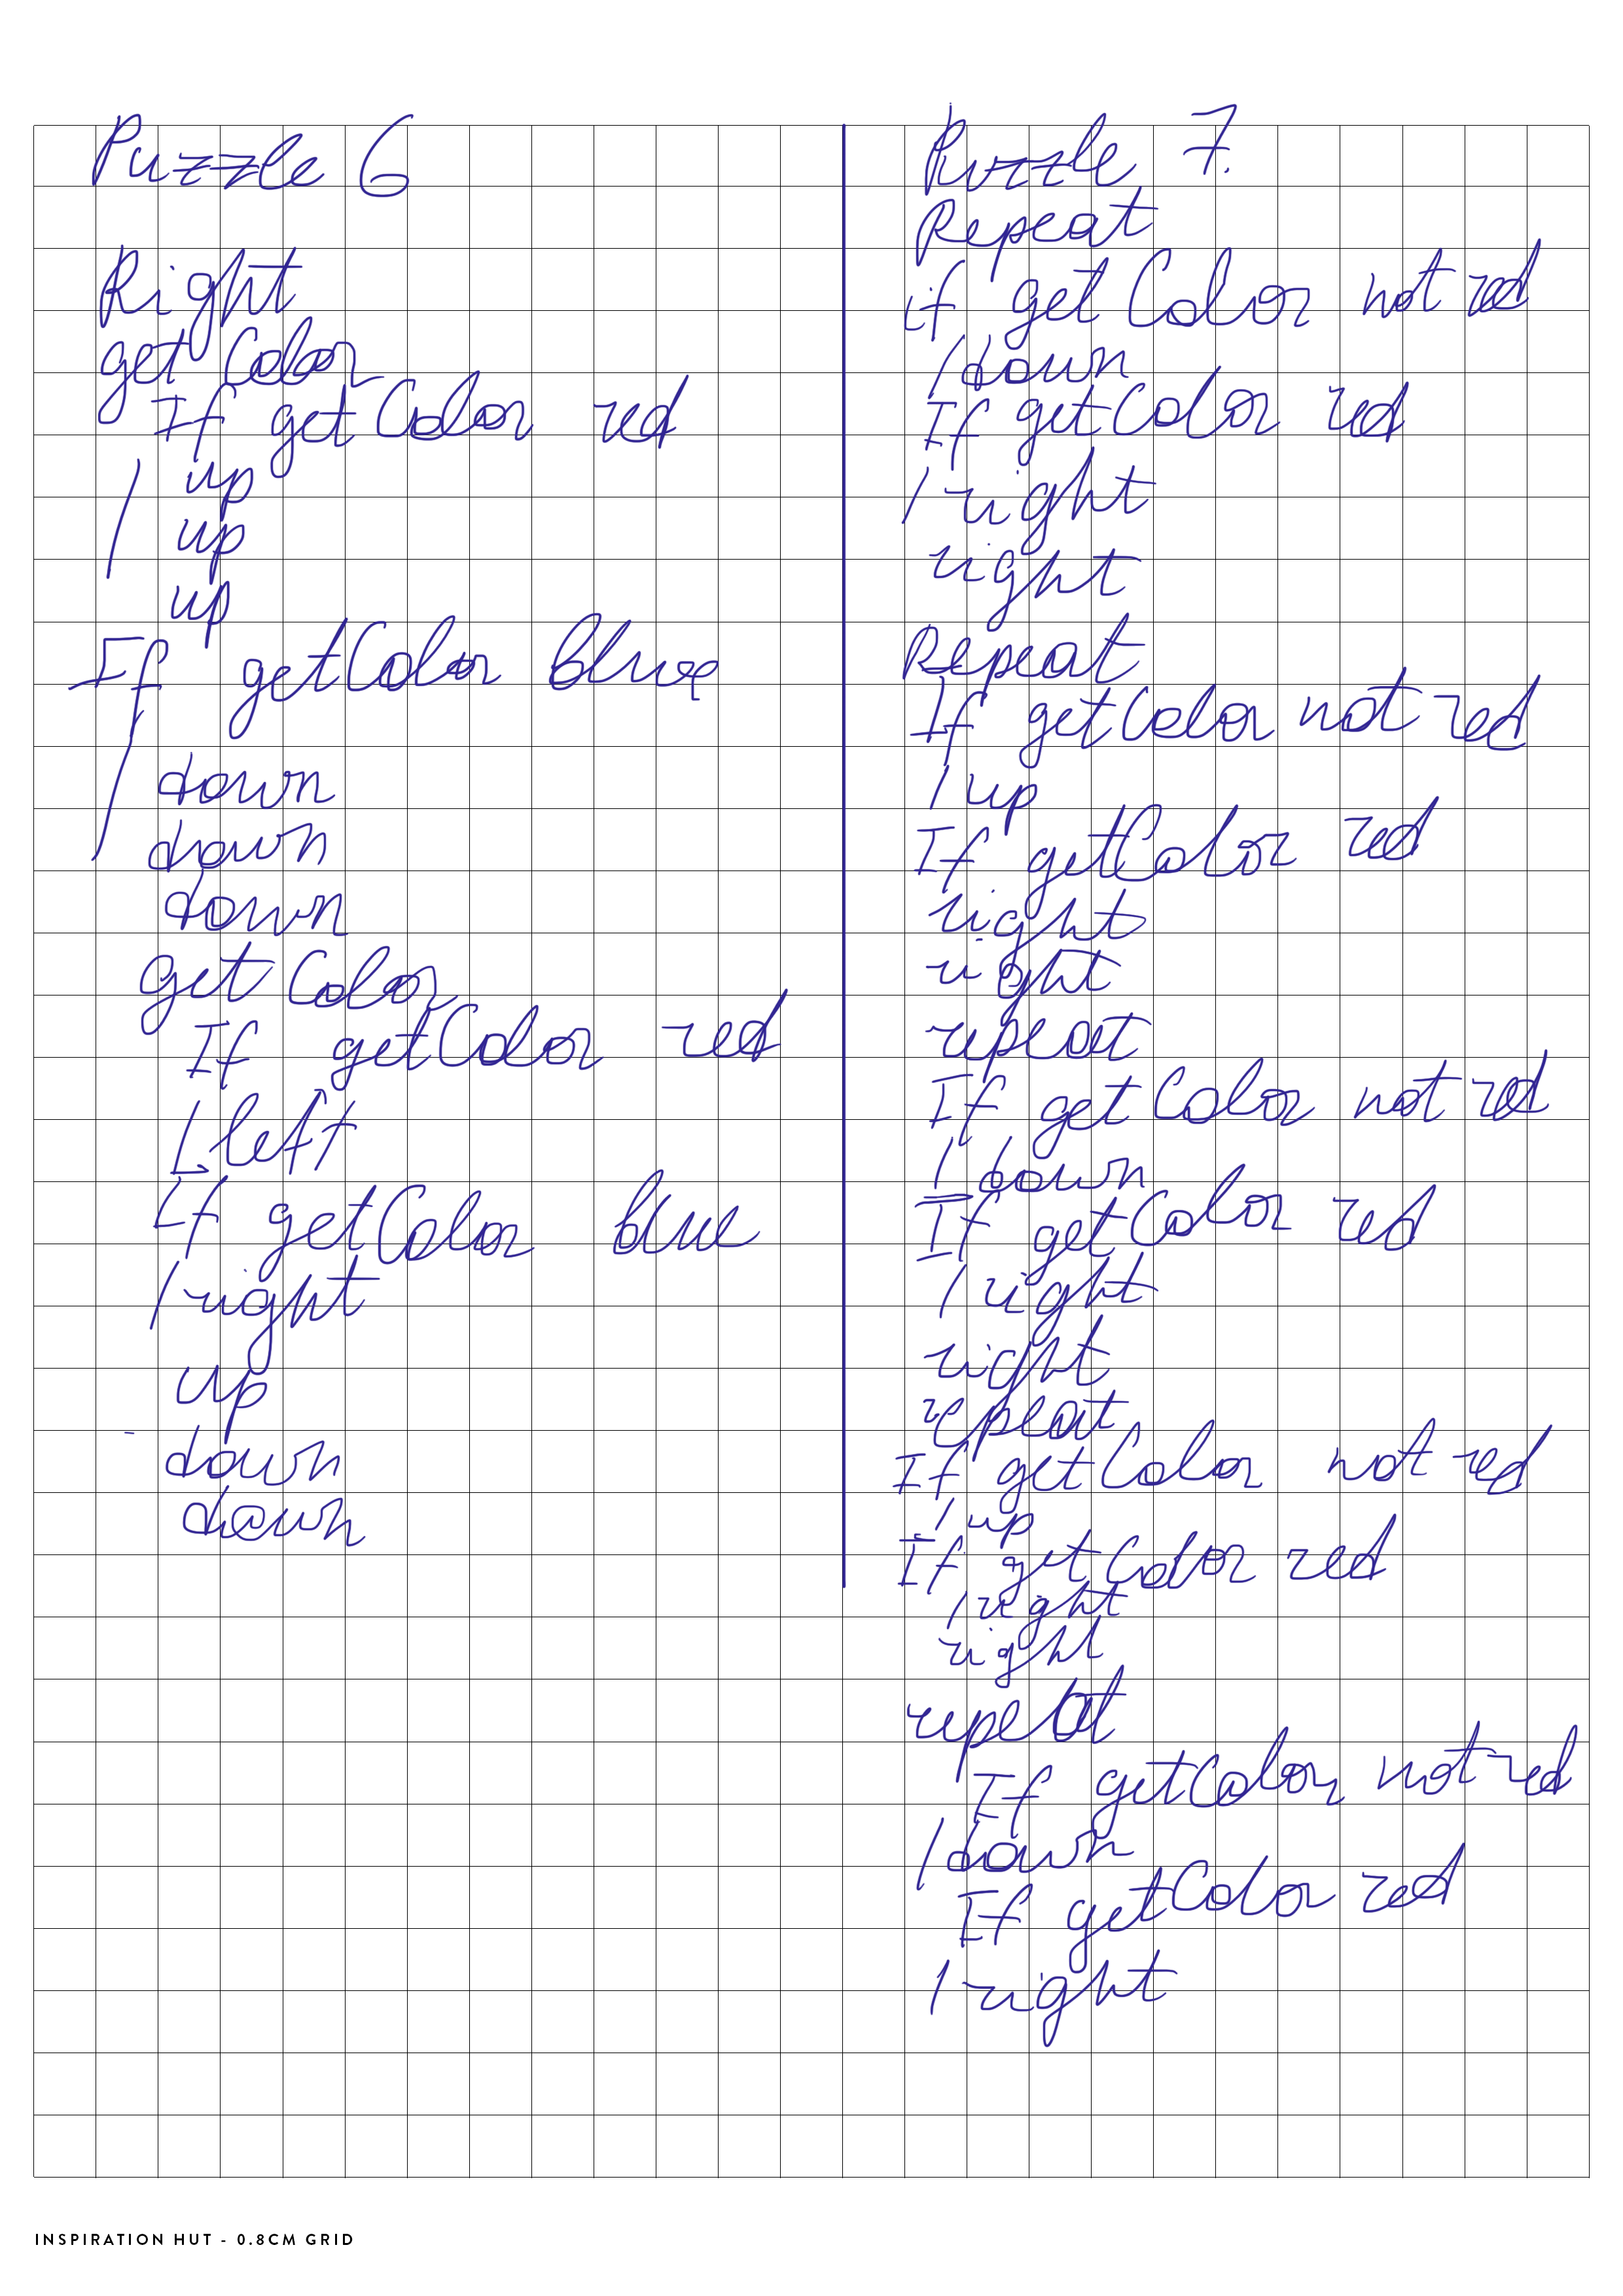 Puzzle 6
Right
get Color
If getColor red
up
up
up
If getColor blue
down
down
down
get Color
If getColor red
left
If getColor blue
right
up
down
down
Puzzle 7.
Repeat
if get Color not red
down
If getColor red
right
right
Repeat
If getColor not red
up
If getColor red
right
right
repeat
If get Color not red
down
If getColor red
right
right
repeat
If getColor not red
up
If getColor red
right
right
repeat
If getColor not red
down
If getColor red
right
INSPIRATION HUT - 0.8CM GRID